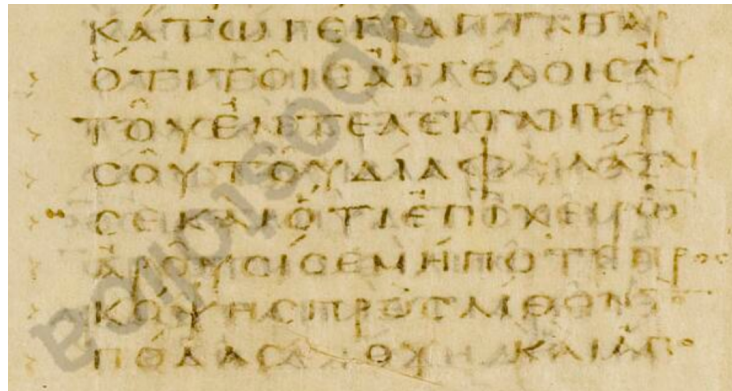 ΚΑΤΩ ΓΕΓΡΑΠΤΑΙ ΓΑΡ
ΟΤΙ ΤΟΙϹ ΑΓΓΕΛΟΙϹ ΑΥ
ΤΟΥ ΕΝΤΕΛΕΙΤΑΙ ΠΕΡΙ
ϹΟΥ ΤΟΥ ΔΙΑΦΥΛΑΞΑΙ
ϹΕ ΚΑΙ ΟΤΙ ΕΠΙ ΧΕΙΡΩ
ΑΡΟΥϹΙ ϹΕ ΜΗΠΟΤΕ ΠΡΟϹ
ΚΟΨΗϹ ΠΡΟϹ ΛΙΘΟΝ ΤΟΝ
ΠΟΔΑ ϹΟΥ ΚΑΙ ΑΠΟ